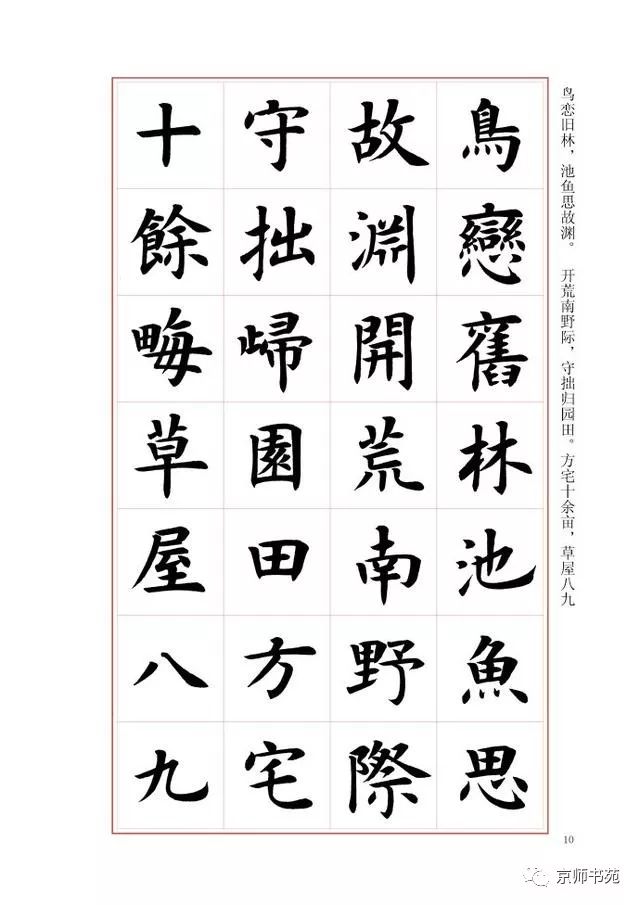 鳥戀舊林池魚思
故淵開荒南野際
守拙歸園田方宅
十餘畮草屋八九
鸟恋旧林，池鱼思故渊。 开荒南野际，守拙归园田。方宅十余亩，草屋八九
10
京师书苑